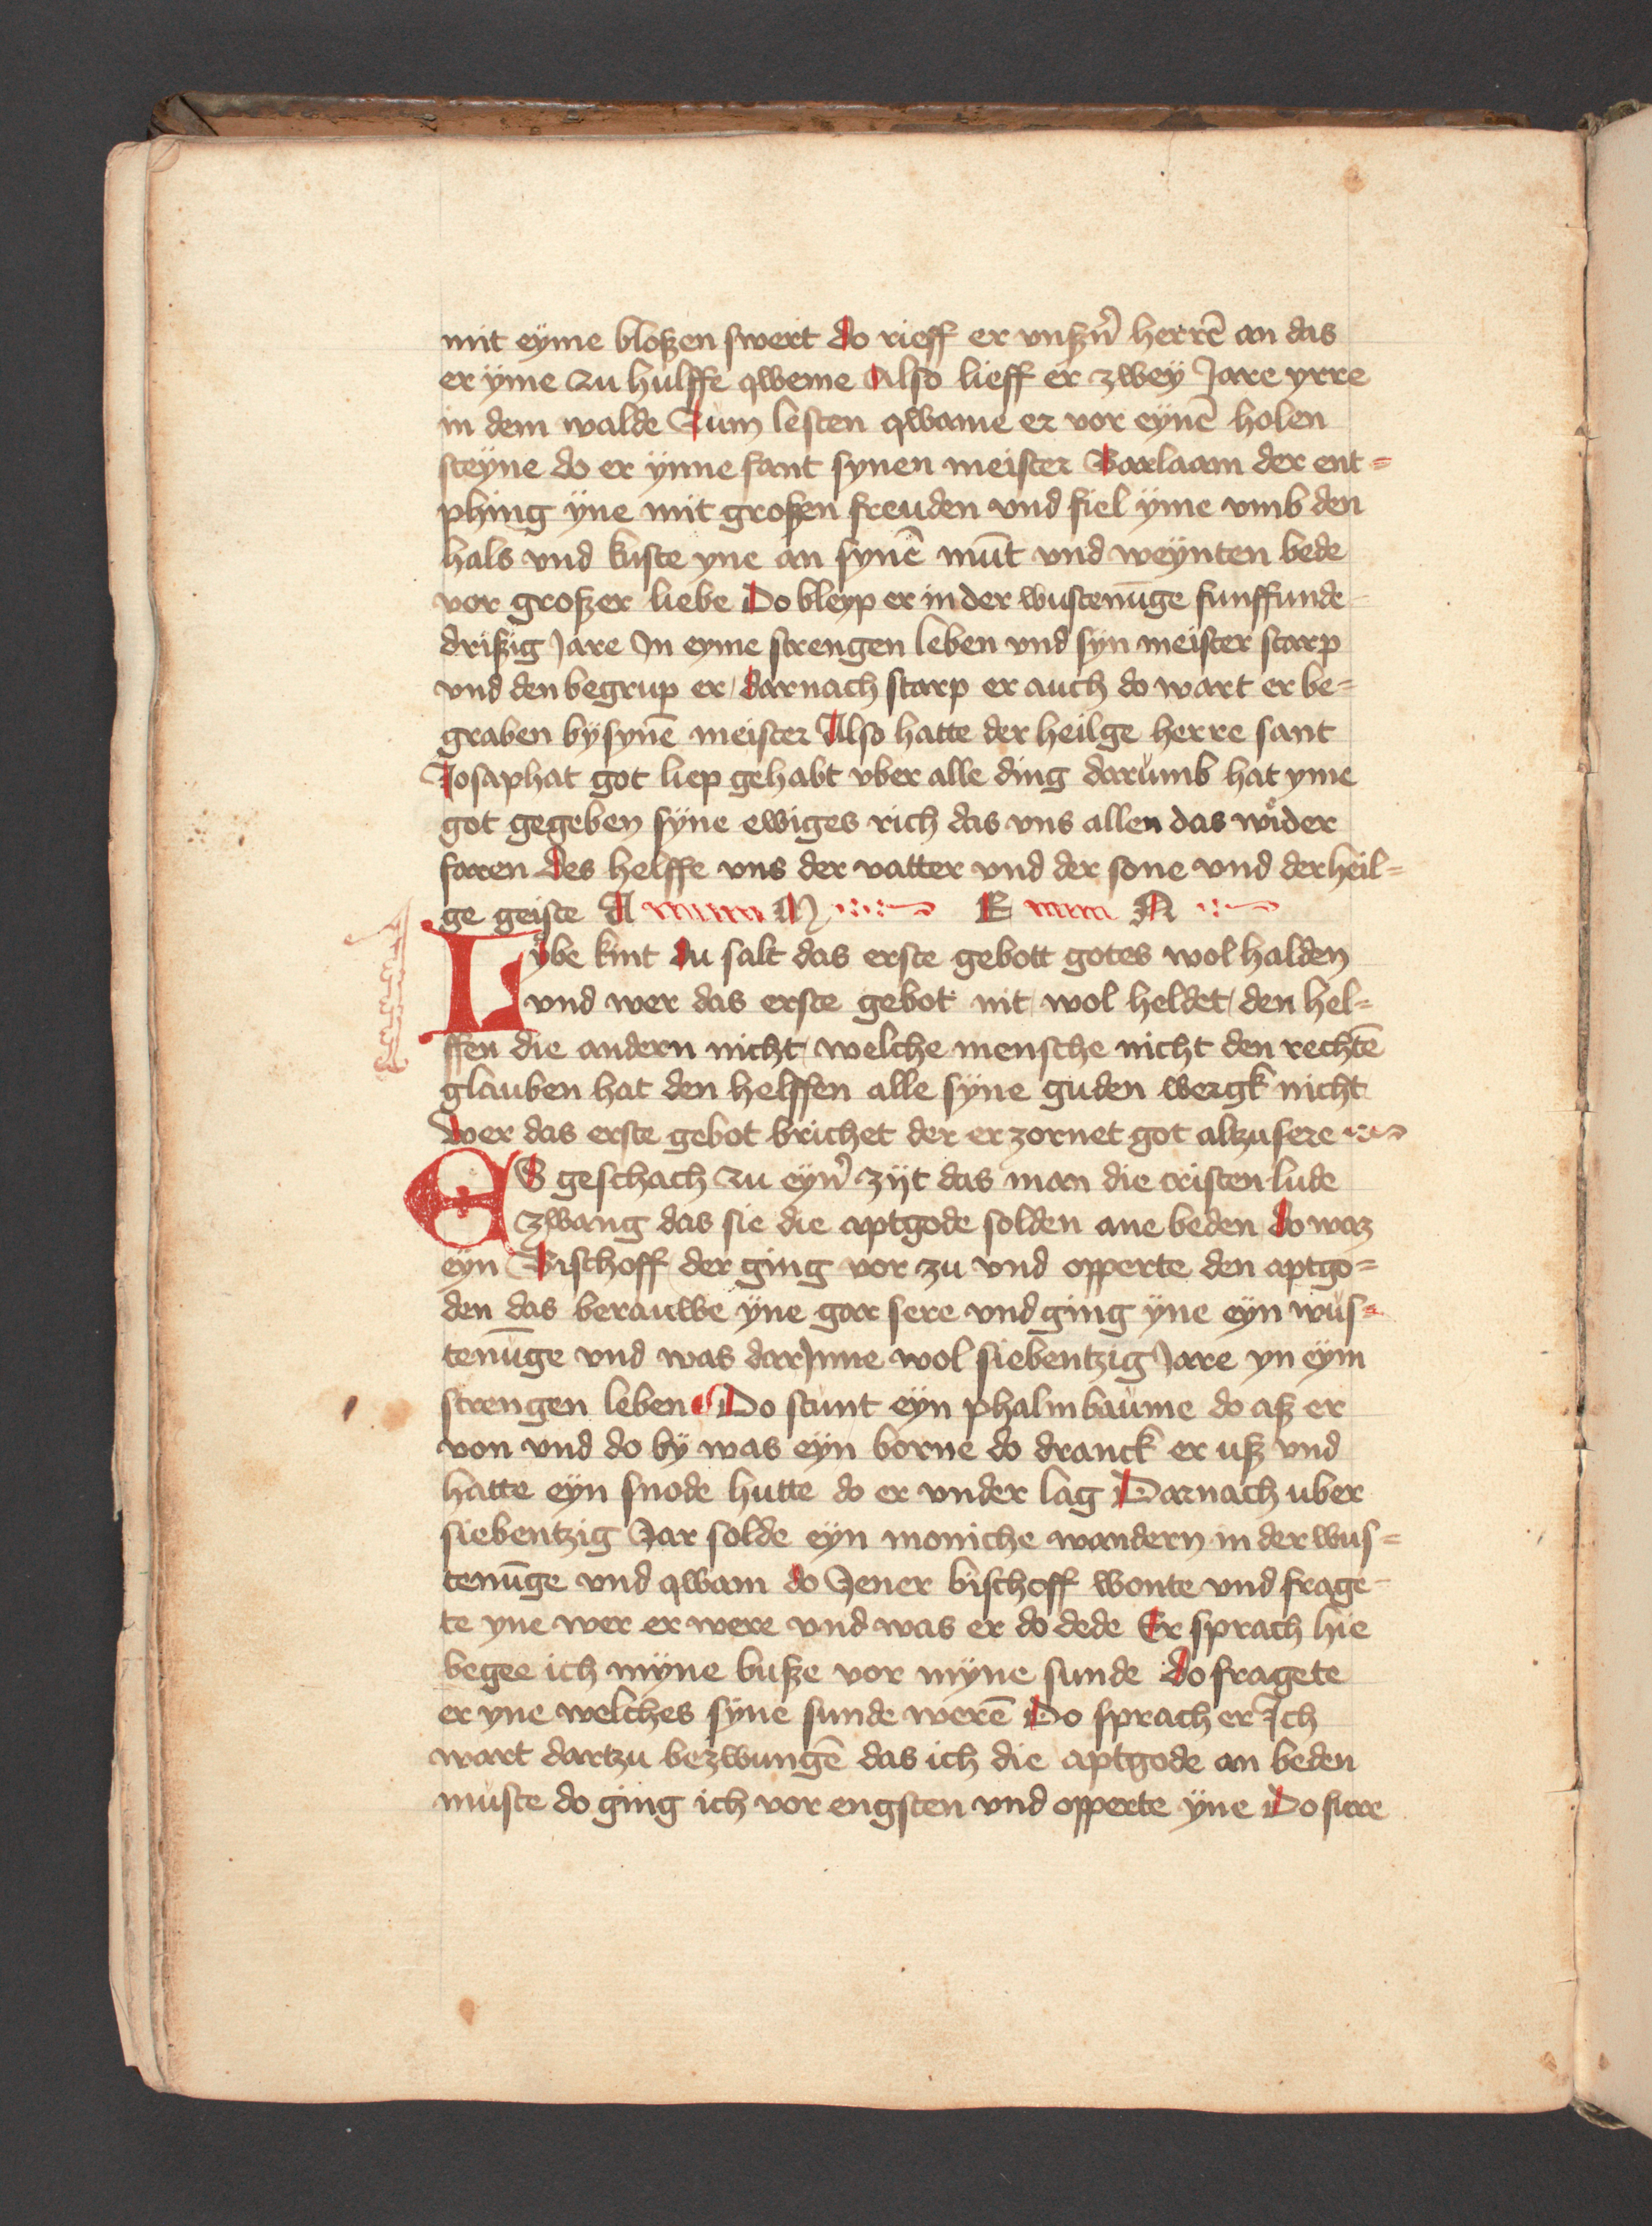 mit eyme bloßen swert do rieff er vnßn̉ herrē an das
er ÿme zu hulffe qweme Also lieff er zwey Jare yrre
in dem walde Zum lesten qwame er vor eynē holen
steÿne do er ÿnne fant synen meister Barlaam der ent=
phing ÿne mit großen freuden vnd fiel ÿme vmb den
hals vnd kuste yne an synē mūt vnd weÿnten bede
vor großer liebe Do bleyp er in der wustenūge funffunde
drißig Jare In eyme strengen leben vnd syn meister starp
vnd den begrup er / darnach starp er auch do wart er be=
graben bÿ synē meister Also hatte der heilge herre sant
Josaphat got liep gehabt vber alle ding darumb hat yme
got gegeben sÿne ewiges rich das vns allen das wid̉er
faren des helffe vns der vatter vnd der sone vnd der heil=
ge geiste A M E N
Lÿbe kint du salt das erste gebott gotes wol halden
vnd wer das erste gebot nit wol heldet / den hel=
ffen die andern nicht / welche mensche nicht den rechtē
glauben hat den helffen alle sÿne guden wergk nicht
wer das erste gebot brichet der erzornet got alzu sere
ES geschach zu eyn̉ zijt das man die cristen lude
zwang das sie die aptgode solden ane beden do waz
eyn Bischoff der ging vor zu vnd opperte den aptgo=
den das berauwe ÿne gar sere vnd ging ÿne eÿn wus=
tenūge vnd was darJnne wol siebentzig Jare yn eÿm
strengen leben Do stunt eÿn phalmbaume do aß er
von vnd do bÿ was eÿn borne do dranck er uß vnd
hatte eÿn snode hutte do er vnder lag Darnach uber
siebentzig Jar solde eÿn moniche wandern in der wus=
tenūge vnd qwam do Jener bischoff wonte vnd frage
te yne wer er were vnd was er do dede Er sprach hie
begee ich mÿne buße vor mÿne sunde do fragete
er yne welches sÿne sunde werē Do sprach er Ich
wart dartzu bezwungē das ich die aptgode an beden
muste do ging ich vor engsten vnd opperte ÿne Do